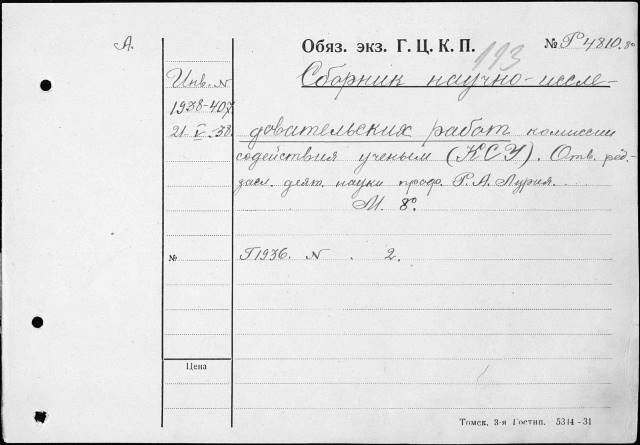 А.
Обяз. экз. Г. Ц. К. П.
№ Р4810.80
193
Инв. N
1938-407
21 V-38.
Сборник научно-иссле-
довательских работ комиссии
содействия ученым (КСУ). Отв. ред.-
засл. деят. науки проф. Р. А. Лурия.
М. 8º
№
Г1936. N . 2.
Цена
Томск, 3-я Гостип. 5314-31